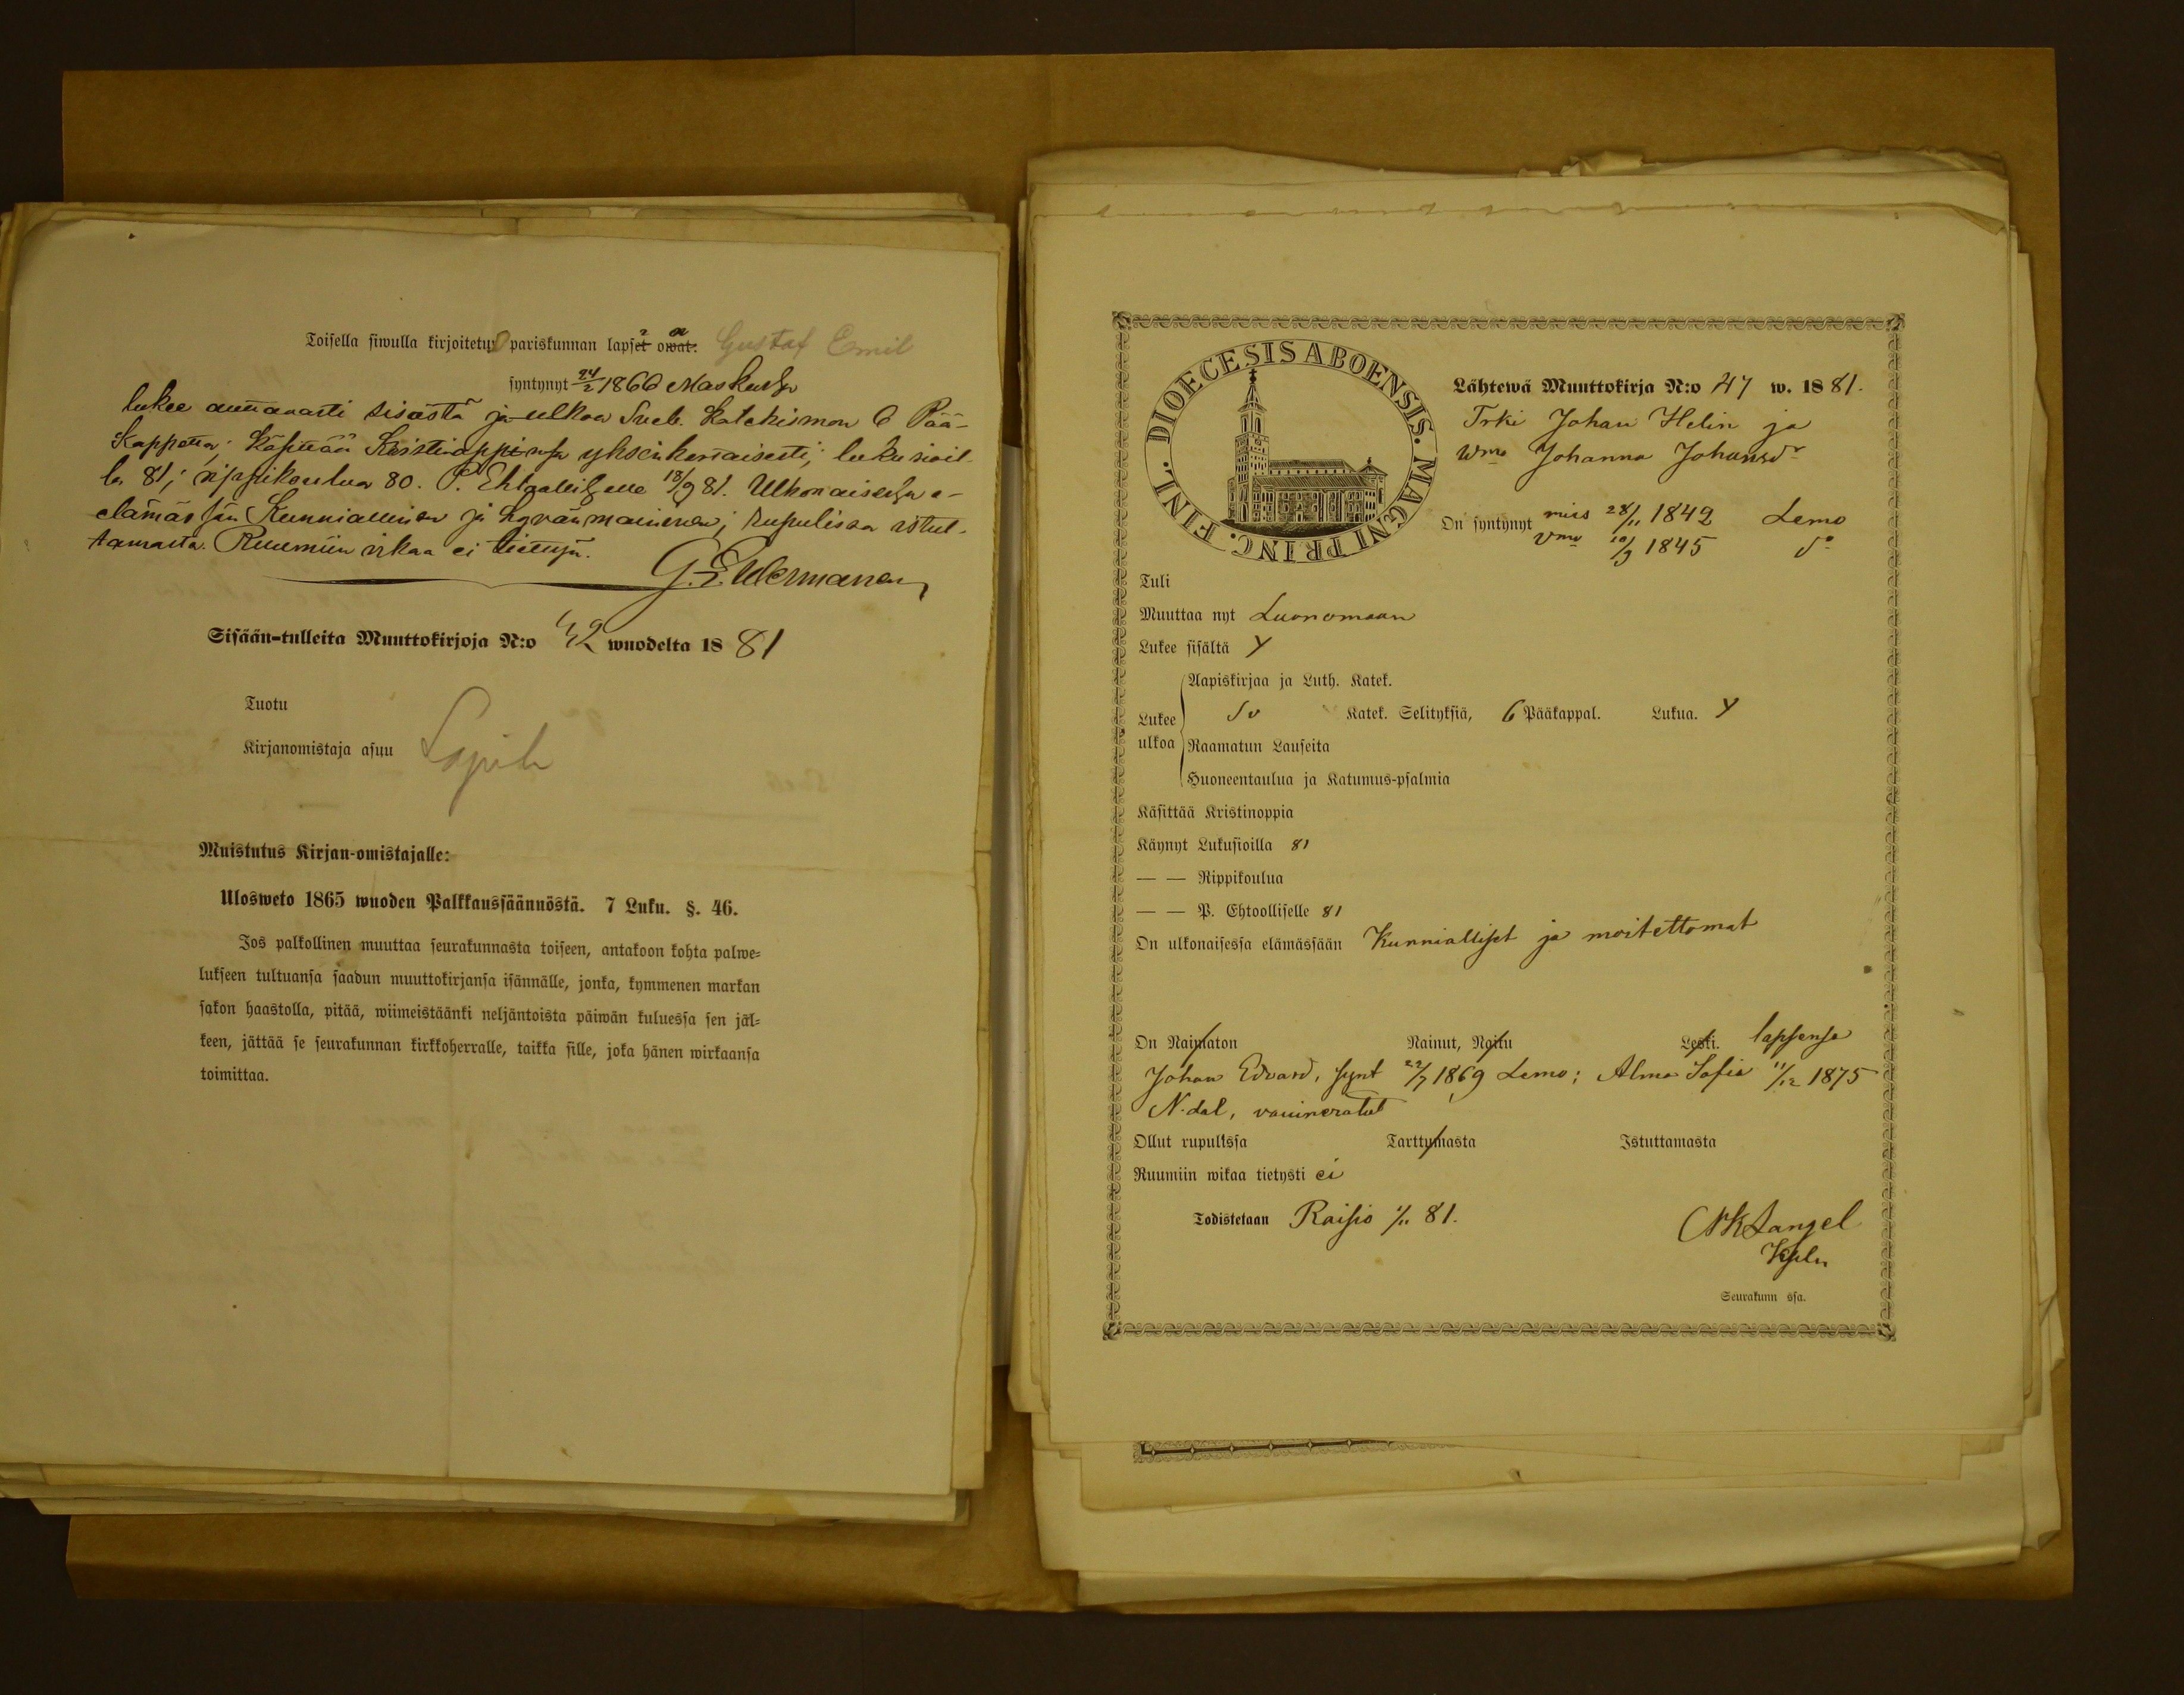 Toisella siwulla kirjoitetun pariskunnan lapset owat: Gustaf Emil
syntynyt 24/2 1866 Maskussa
lukee auttavasti sisästä ja ulkoa Sveb. Katekismon 6 Pää-
kappaletta; käsittää Kristinoppinsa yksinkertaisesti; lukusioil-
la 81; rippikoulua 80. P. Ehtoollisella 18/9 81. Ulkonaisessa e-
elämässään Kunniallinen ja hyvänmaineinen; rupulissa istut-
tamasta. Ruumiin vikaa ei tietty.
Sisään-tulleita Muuttokirjoja N:o 42 wuodelta 1881
Tuotu
Kirjanomistaja asuu
Muistutus Kirjan-omistajalle:
Ulosweto 1865 wuoden Palkkaussäännöstä. 7 Luku. §. 46.
Jos palkollinen muuttaa seurakunnasta toiseen, antakoon kohta palwe-
lukseen tultuansa saadun muuttokirjansa isännälle, jonka, kymmenen markan
sakon haastolla, pitää, wiimeistäänki neljäntoista päiwän kuluessa sen jäl-
keen, jättää se seurakunnan kirkkoherralle, taikka sille, joka hänen wirkaansa
toimittaa.
DIOECESIS ABOENSIS. MAGNI PRINC. FINL.
Lähtewä Muuttokirja N:o 47 w. 1881.
Trki Johan Helin ja
Wmo Johanna Johansdr
On syntynyt mies 28/11 1842 Lemo
Vmo 10/9 1845 do
Tuli
Muuttaa nyt Luonomaan
Lukee sisältä y
Aapiskirjaa ja Luth. Katek.
Lukee ulkoa Sv Katek. Selityksiä, 6 Pääkappal. Lukua. y
Raamatun Lauseita
Huoneentaulua ja Katumus-psalmia
Käsittää Kristinoppia
Käynyt Lukusioilla 81
— — Rippikoulua
— — P. Ehtoolliselle 81
On ulkonaisessa elämässään Kunnialliset ja moitettomat
On Naimaton Nainut, Naitu Leski. lapsensa
Johan Edvard, synt 22/7 1869 Lemo; Alma Sofia 11/12 1875
N.dal,
Ollut rupulissa Tarttumasta Istuttamasta
Ruumiin wikaa tietysti ei
Todistetaan Raisio 1/11 81.
Langel
Kpln
Seurakunn ssa.